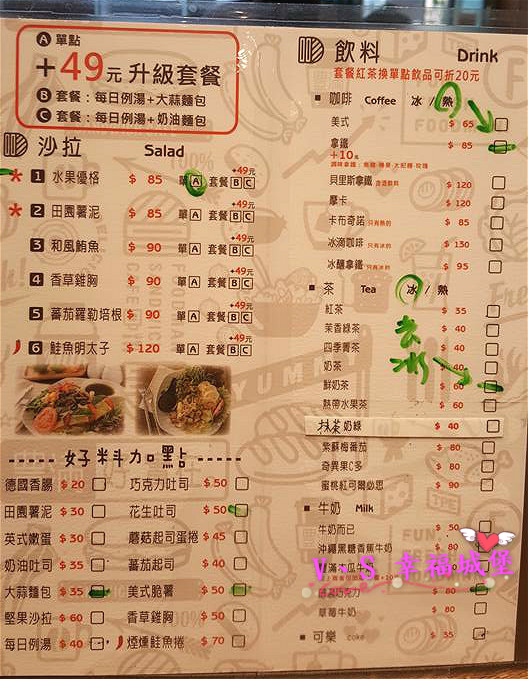 Ⓐ 單點
+49元 升級套餐
Ⓑ 套餐：每日例湯+大蒜麵包
Ⓒ 套餐：每日例湯+奶油麵包
沙拉 Salad
+49元
1 水果優格 $ 85 單A 套餐BC
+49元
2 田園薯泥 $ 85 單A 套餐BC
+49元
3 和風鮪魚 $ 90 單A 套餐BC
+49元
4 香草雞胸 $ 90 單A 套餐BC
+49元
5 蕃茄羅勒培根 $ 90 單A 套餐BC
+49元
6 鮭魚明太子 $ 120 單A 套餐BC
YUMM
好料加點
德國香腸 $ 20 巧克力吐司 $ 50
田園薯泥 $ 30 花生吐司 $ 50
英式嫩蛋 $ 30 蘑菇起司蛋捲 $ 45
奶油吐司 $ 35 蕃茄起司 $ 40
大蒜麵包 $ 35 美式脆薯 $ 50
堅果沙拉 $ 60 香草雞胸 $ 50
每日例湯 $ 40 煙燻鮭魚捲 $ 70
飲料 Drink
套餐紅茶換單點飲品可折20元
咖啡 Coffee 冰 / 熱
美式 $ 65
拿鐵 $ 85
+10元
貝里斯拿鐵 $ 120
摩卡 $ 120
卡布奇諾 只有熱的 $ 85
冰滴咖啡 只有冰的 $ 130
冰釀拿鐵 只有冰的 $ 95
茶 Tea 冰 / 熱
紅茶 $ 35
茉香綠茶 $ 40
四季菁茶 $ 40
奶茶 $ 40
鮮奶茶 $ 60
熱帶水果茶 $ 60
抹茶奶綠 $ 40
紫蘇梅番茄 $ 80
奇異果C多 $ 80
蜜桃紅可爾必思 $ 90
去冰
牛奶 Milk
牛奶而已 $ 50
沖繩黑糖香蕉牛奶 $ 80
木瓜牛奶
巧克力 $ 80
草莓牛奶 $ 80
可樂 Coke $ 35
V、S 幸福城堡